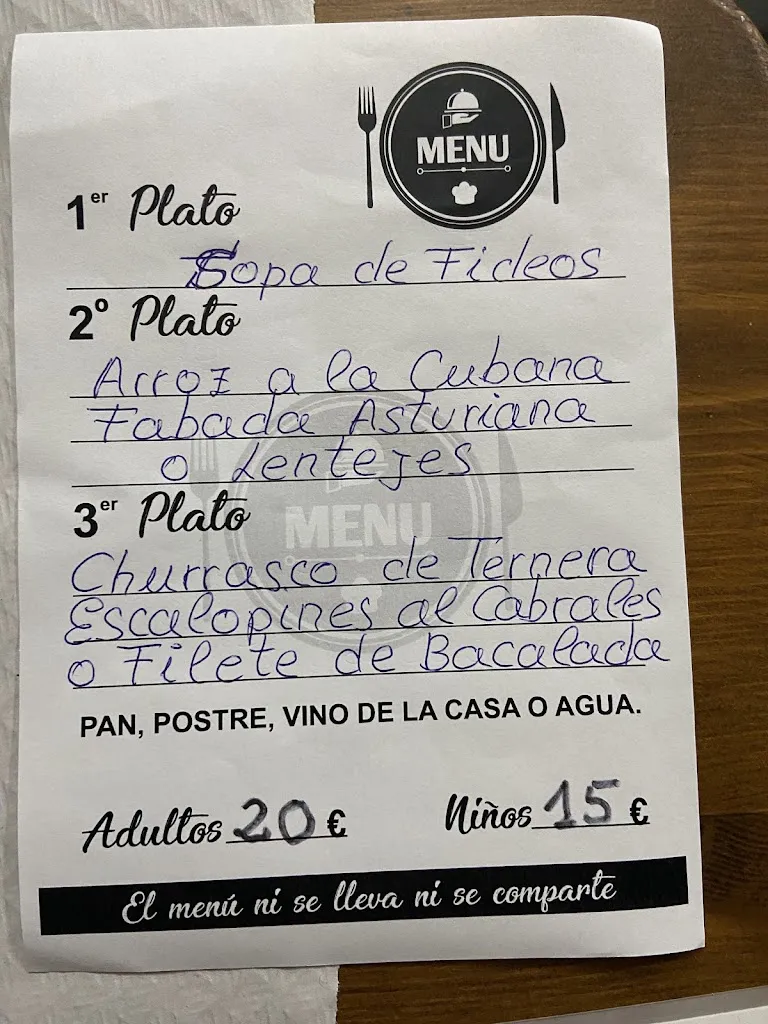 MENU
1er Plato
Sopa de Fideos
2º Plato
Arroz a la Cubana
Fabada Asturiana
o Lentejes
MENU
3er Plato
Churrasco de Ternera
Escalopines al Cabrales
o Filete de Bacalada
PAN, POSTRE, VINO DE LA CASA O AGUA.
Adultos 20 € Niños 15 €
El menú ni se lleva ni se comparte